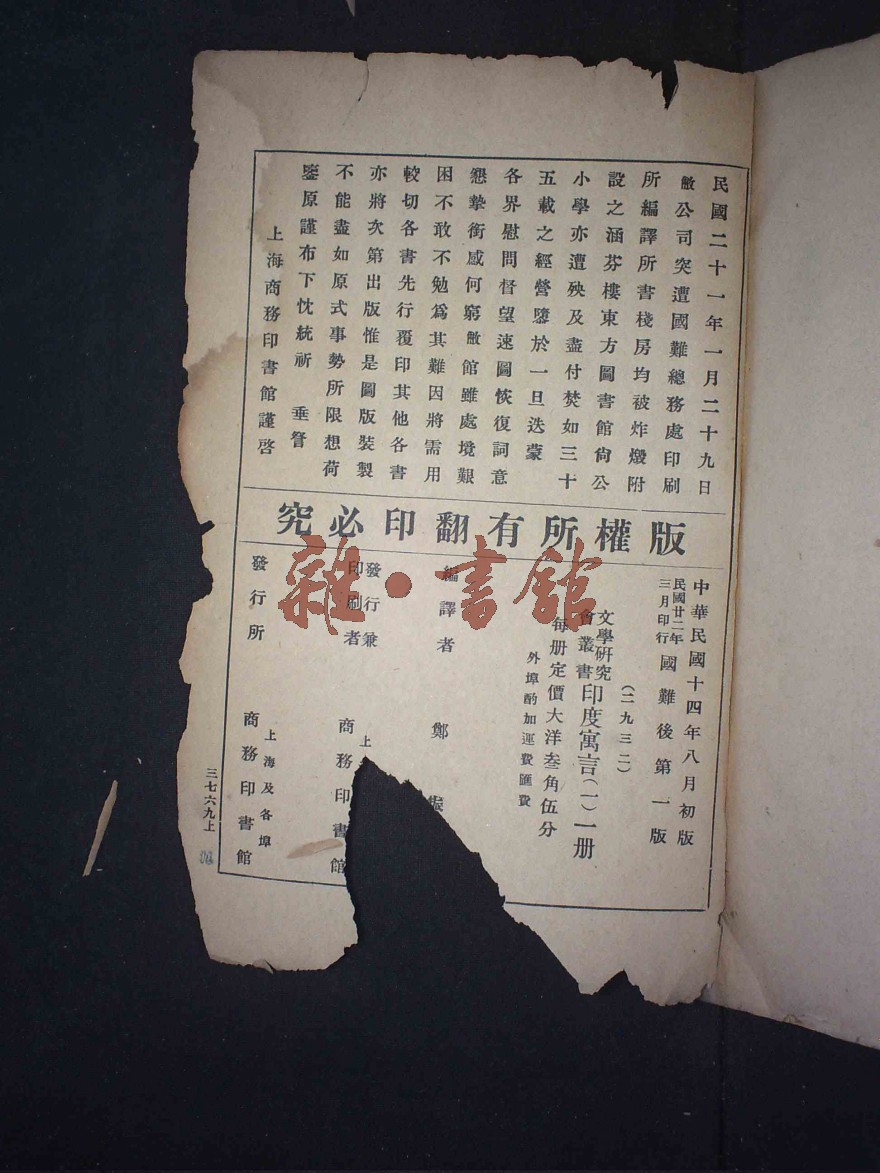 民國二十一年一月二十九日
敝公司突遭國難總務處印刷
所編譯所書棧房均被炸燬附
設之涵芬樓東方圖書館尙公
小學亦遭殃及盡付焚如三十
五載之經營隳於一旦迭蒙
各界慰問督望速圖恢復詞意
懇摯銜感何窮敝館雖處境艱
困不敢不勉爲其難因將需用
較切各書先行覆印其他各書
亦將次第出版惟是圖版裝製
不能盡如原式事勢所限想荷
鑒原謹布下忱統祈 垂詧
上海商務印書館謹啓
版權所有翻印必究
中華民國十四年八月初版
民國廿二年三月印行 國難後第一版
(二九三二)
文學研究會叢書 印度寓言(一)一册
每册定價大洋叁角伍分
外埠酌加運費匯費
編譯者 鄭振
發行兼印刷者 上
商務印書館
發行所 上海及各埠
商務印書館
三七六九上
雜·書館